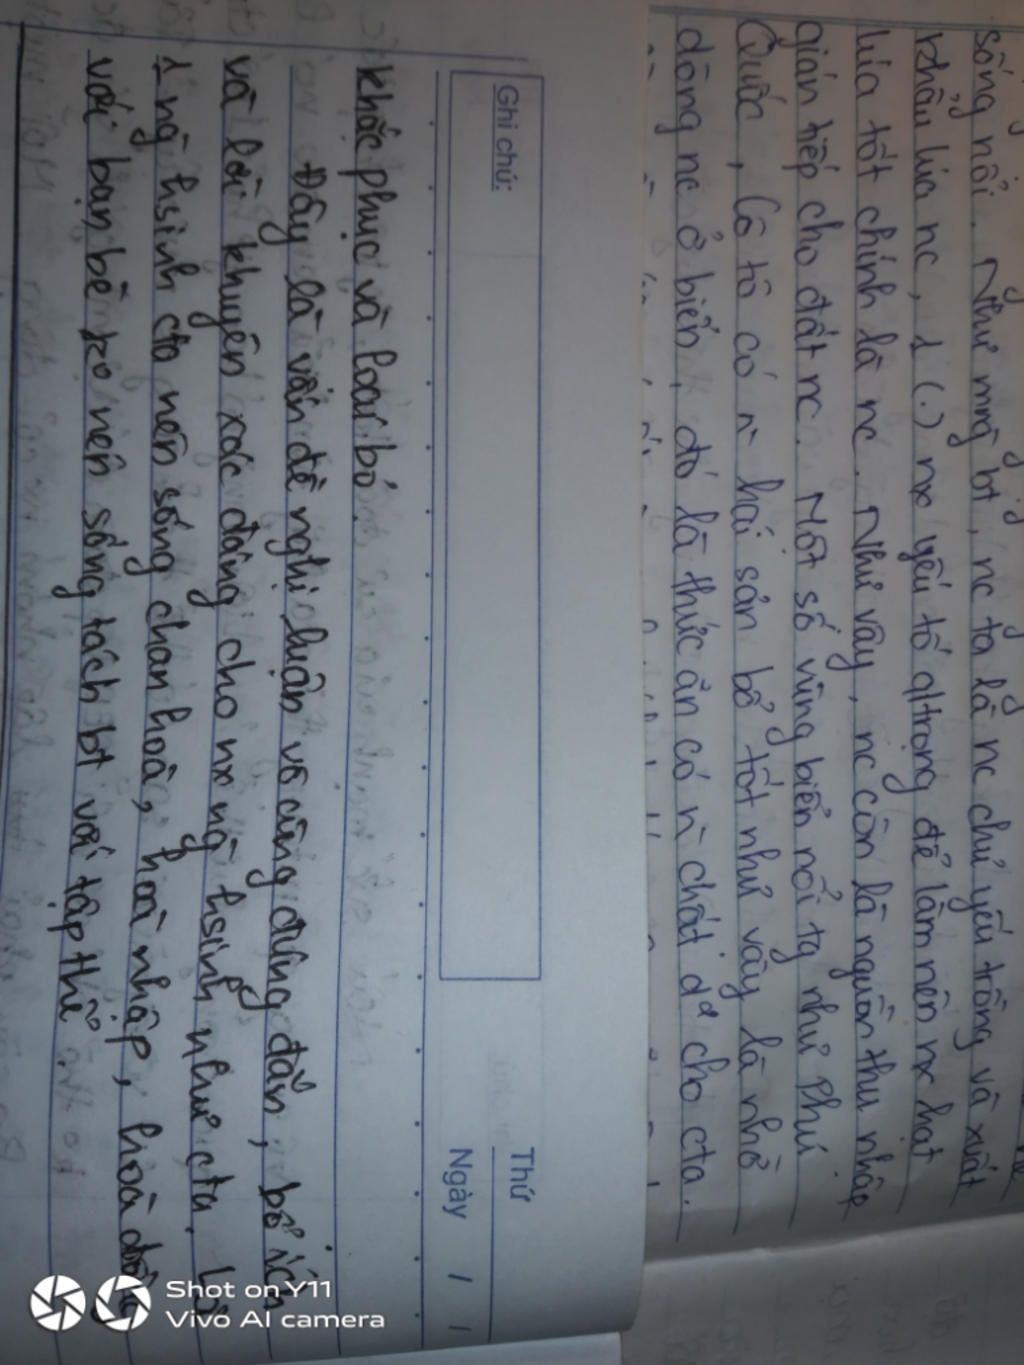 sống nổi. Như mng bt, nc ta là nc chủ yếu trồng và xuất
khẩu lúa nc, 1 (.) nx yếu tố qtrọng để làm nên nx hạt
lúa tốt chính là nc. Như vậy, nc còn là nguồn thu nhập
gián tiếp cho đất nc. Một số vùng biển nổi tg như Phú
Quốc, Cô tô có n` hải sản bổ tốt như vậy là nhờ
dòng nc ở biển, đó là thức ăn có n` chất d² cho cta.
Ghi chú:
Thứ
Ngày / /
khắc phục và loại bỏ.
Đây là vấn đề nghị luận vô cùng đúng đắn, bổ ích
và lời khuyên xác đáng cho nx ng` hsinh như cta. Là
1 ng` hsinh cta nên sống chan hoà, hoà nhập, hoà đồng
với bạn bè ko nên sống tách bt với tập thể.
Shot on Y11
Vivo AI camera